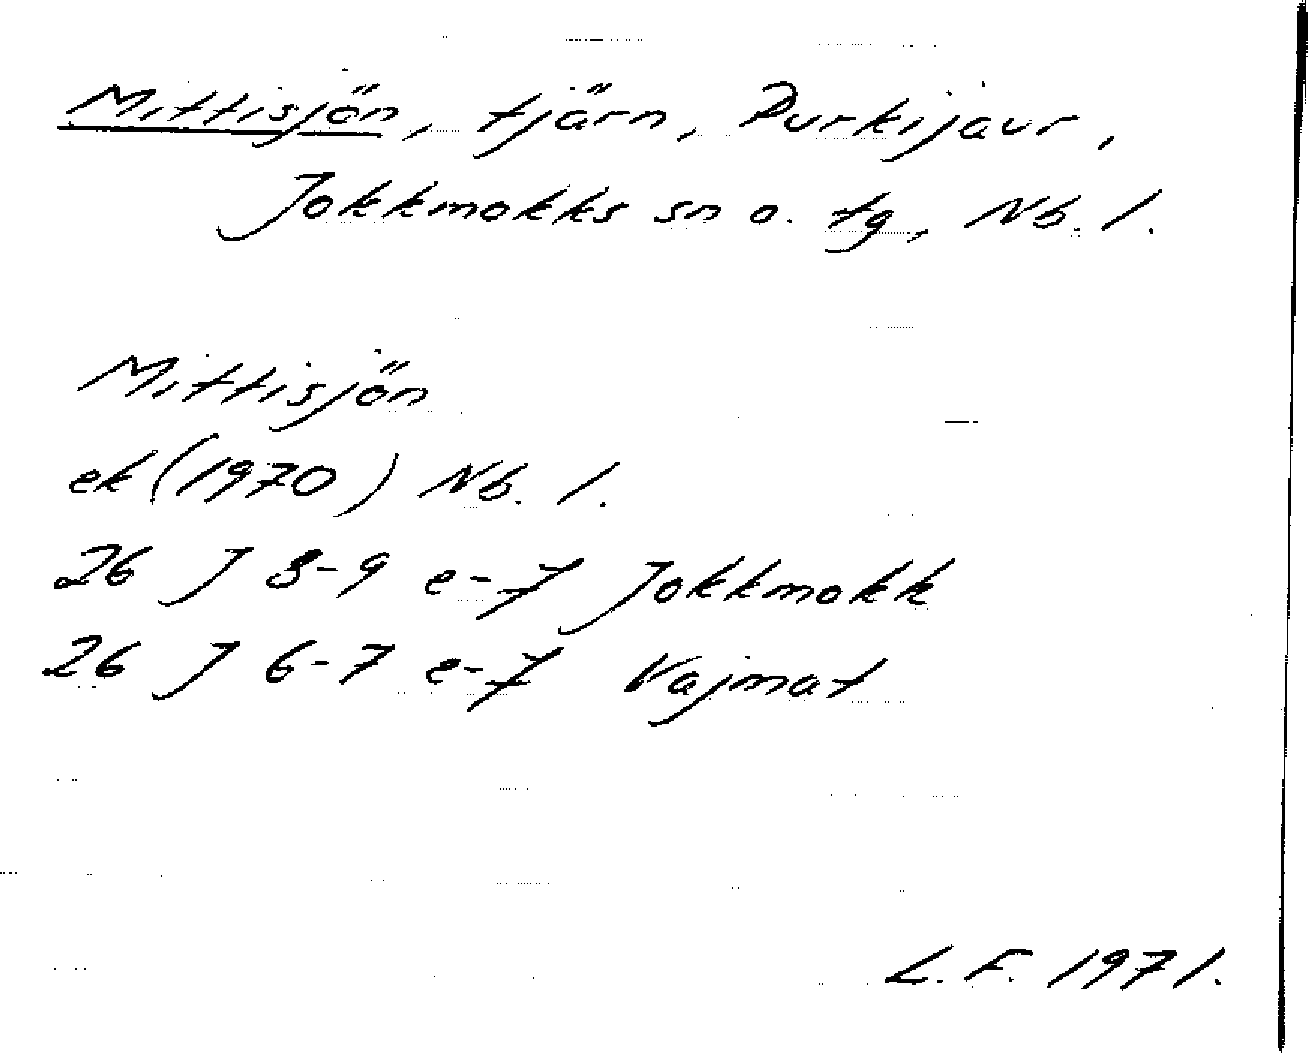 Mittisjön, tjärn, Purkijaur,
Jokkmokks sn o. tg, Nb. l.
Mittisjön
ek (1970) Nb. l.
26 J 8-9 e-7 Jokkmokk
26 J 6-7 e-7 Vajmat
L. F. 1971.